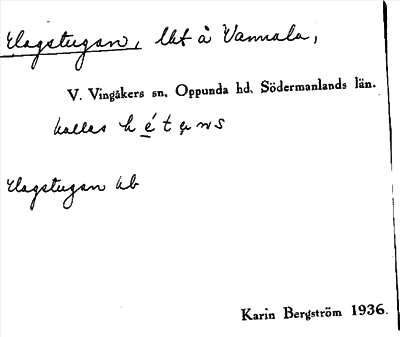 Elagstugan, lht å Vannala,
V. Vingåkers sn, Oppunda hd, Södermanlands län.
kallas
Elagstugan
Karin Bergström 1936.